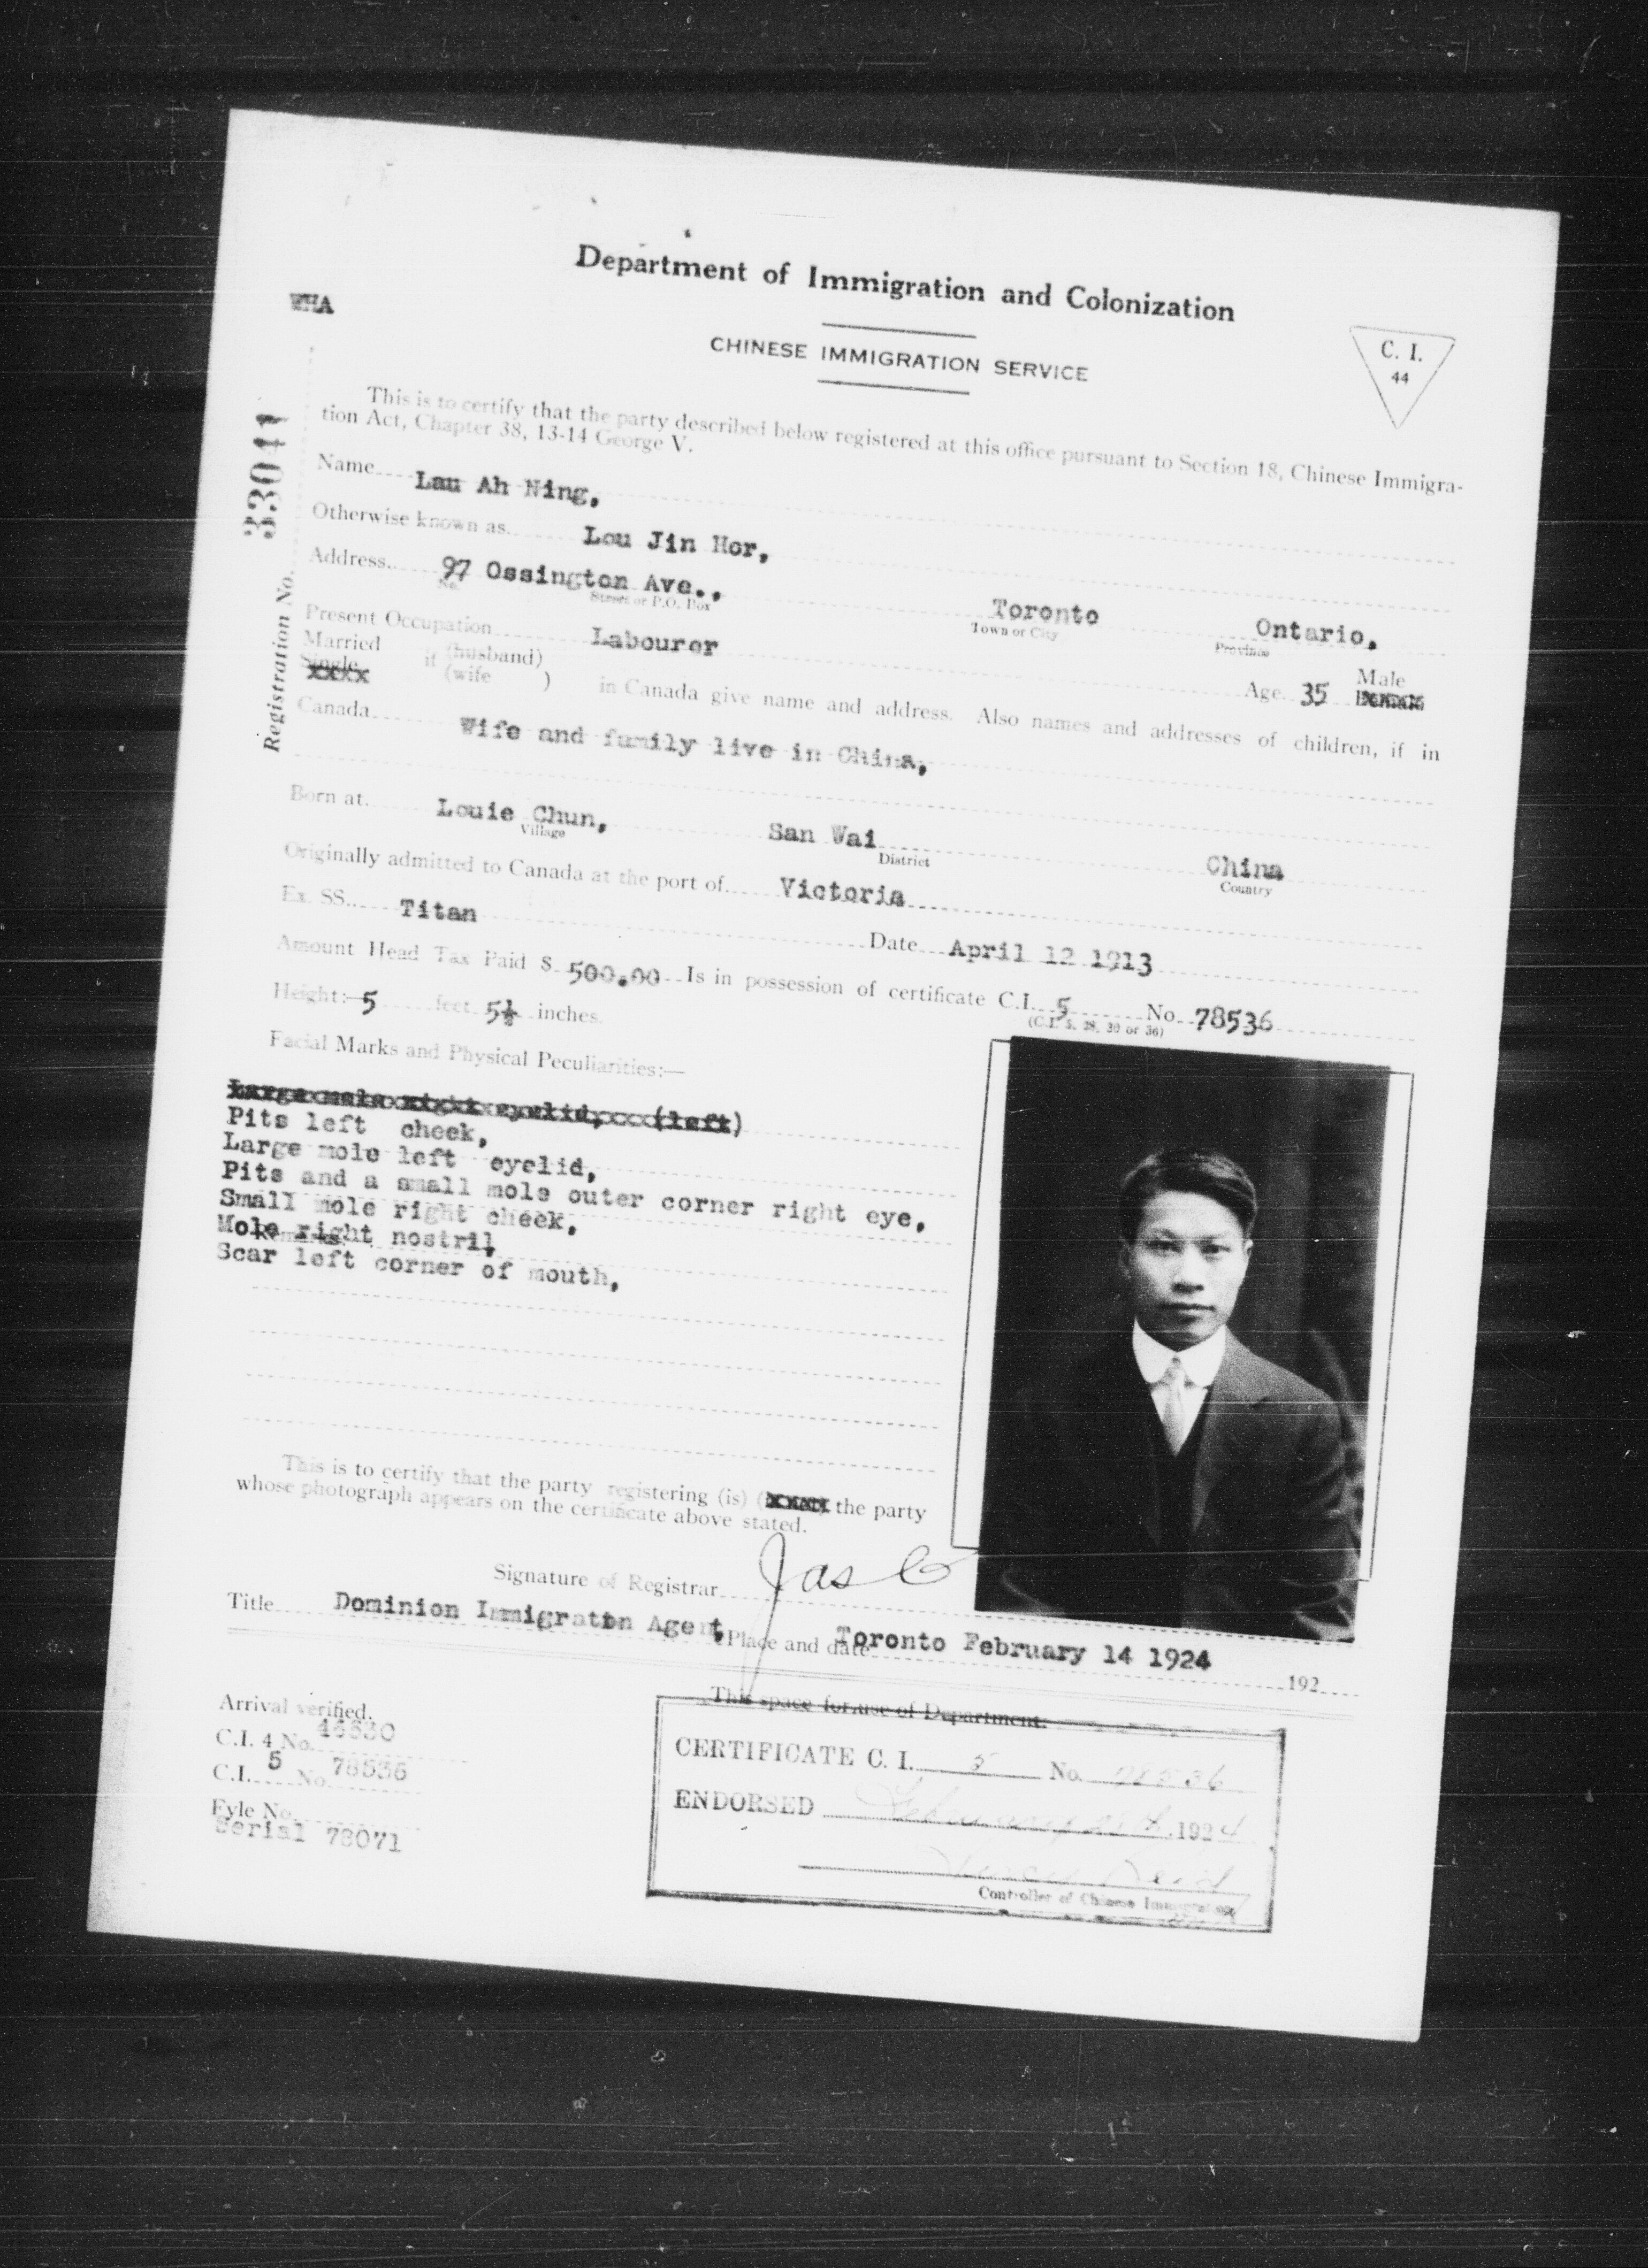 Department of Immigration and Colonization
WHA
CHINESE IMMIGRATION SERVICE
C. I.
44
This is to certify that the party described below registered at this office pursuant to Section 18, Chinese Immigra-
tion Act, Chapter 38, 13-14 George V.
Registration No. 33041
Name Lau Ah Ning,
Otherwise known as Lou Jin Hor,
Address 97 Ossington Ave., Toronto Ontario,
No. Street or P.O. Box Town or City Province
Present Occupation Labourer Age 35 Male
Married
Single if (husband)
(wife ) in Canada give name and address. Also names and addresses of children, if in
Canada Wife and family live in China,
Born at Louie Chun, San Wai China
Village District Country
Originally admitted to Canada at the port of Victoria
Ex. SS. Titan Date April 12 1913
Amount Head Tax Paid $ 500.00 Is in possession of certificate C.I. 5 No. 78536
(C.I. 5, 28, 30 or 36)
Height:- 5 feet 5½ inches.
Facial Marks and Physical Peculiarities:—
Large mole right eyelid, (left)
Pits left cheek,
Large mole left eyelid,
Pits and a small mole outer corner right eye,
Small mole right cheek,
Mole right nostril,
Remarks:
Scar left corner of mouth,
This is to certify that the party registering (is) the party
whose photograph appears on the certificate above stated.
Signature of Registrar Jas
Title Dominion Immigration Agent, Place and date Toronto February 14 1924 192
Arrival verified.
C.I. 4 No.
C.I. 5 No. 78536
Fyle No.
Serial 78071
This space for use of Department.
CERTIFICATE C. I. 5 No. 78536
ENDORSED February 1924
Controller of Chinese Immigration